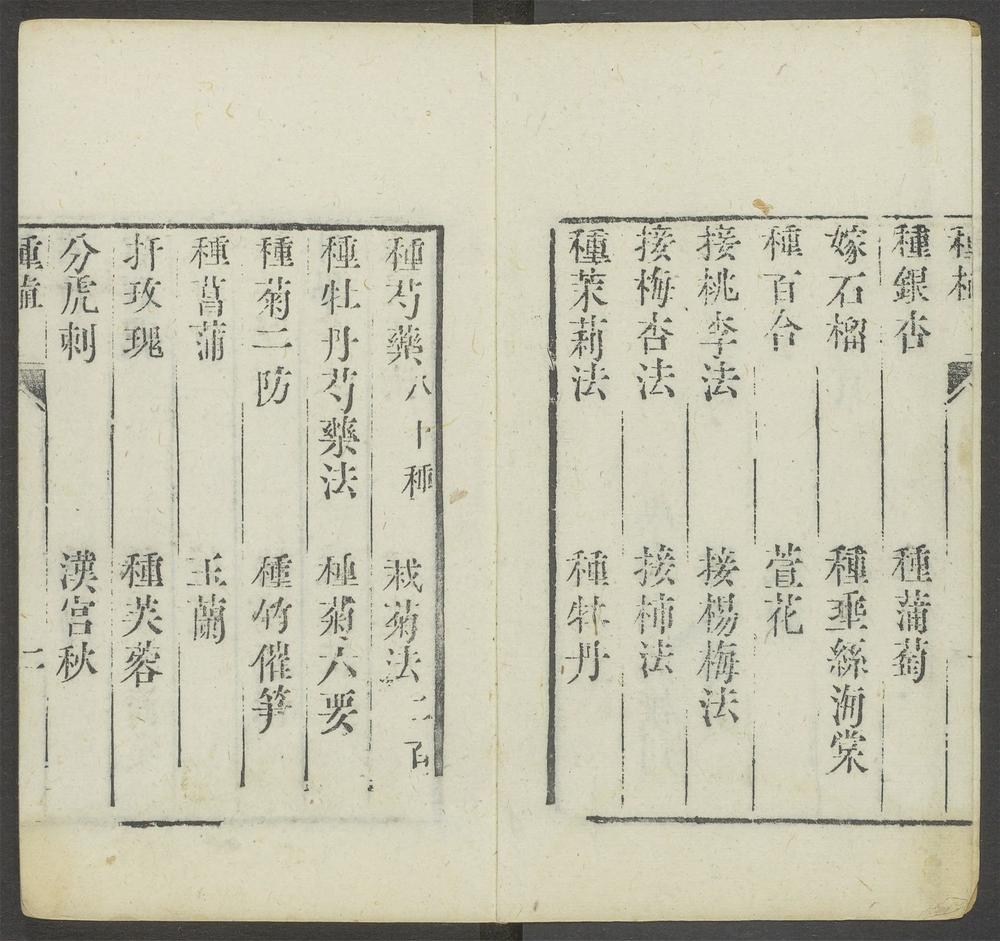 種
種銀杏　種蒲萄
嫁石榴　種垂絲海棠
種百合　萱花
接桃李法　接楊梅法
接梅杏法　接柿法
種茉莉法　種牡丹
種芍藥八十種　栽菊法二百
種牡丹芍藥法　種菊六要
種菊二防　種竹催笋
種菖蒲　玉蘭
扦玫瑰　種芙蓉
分虎刺　漢宮秋
種　二